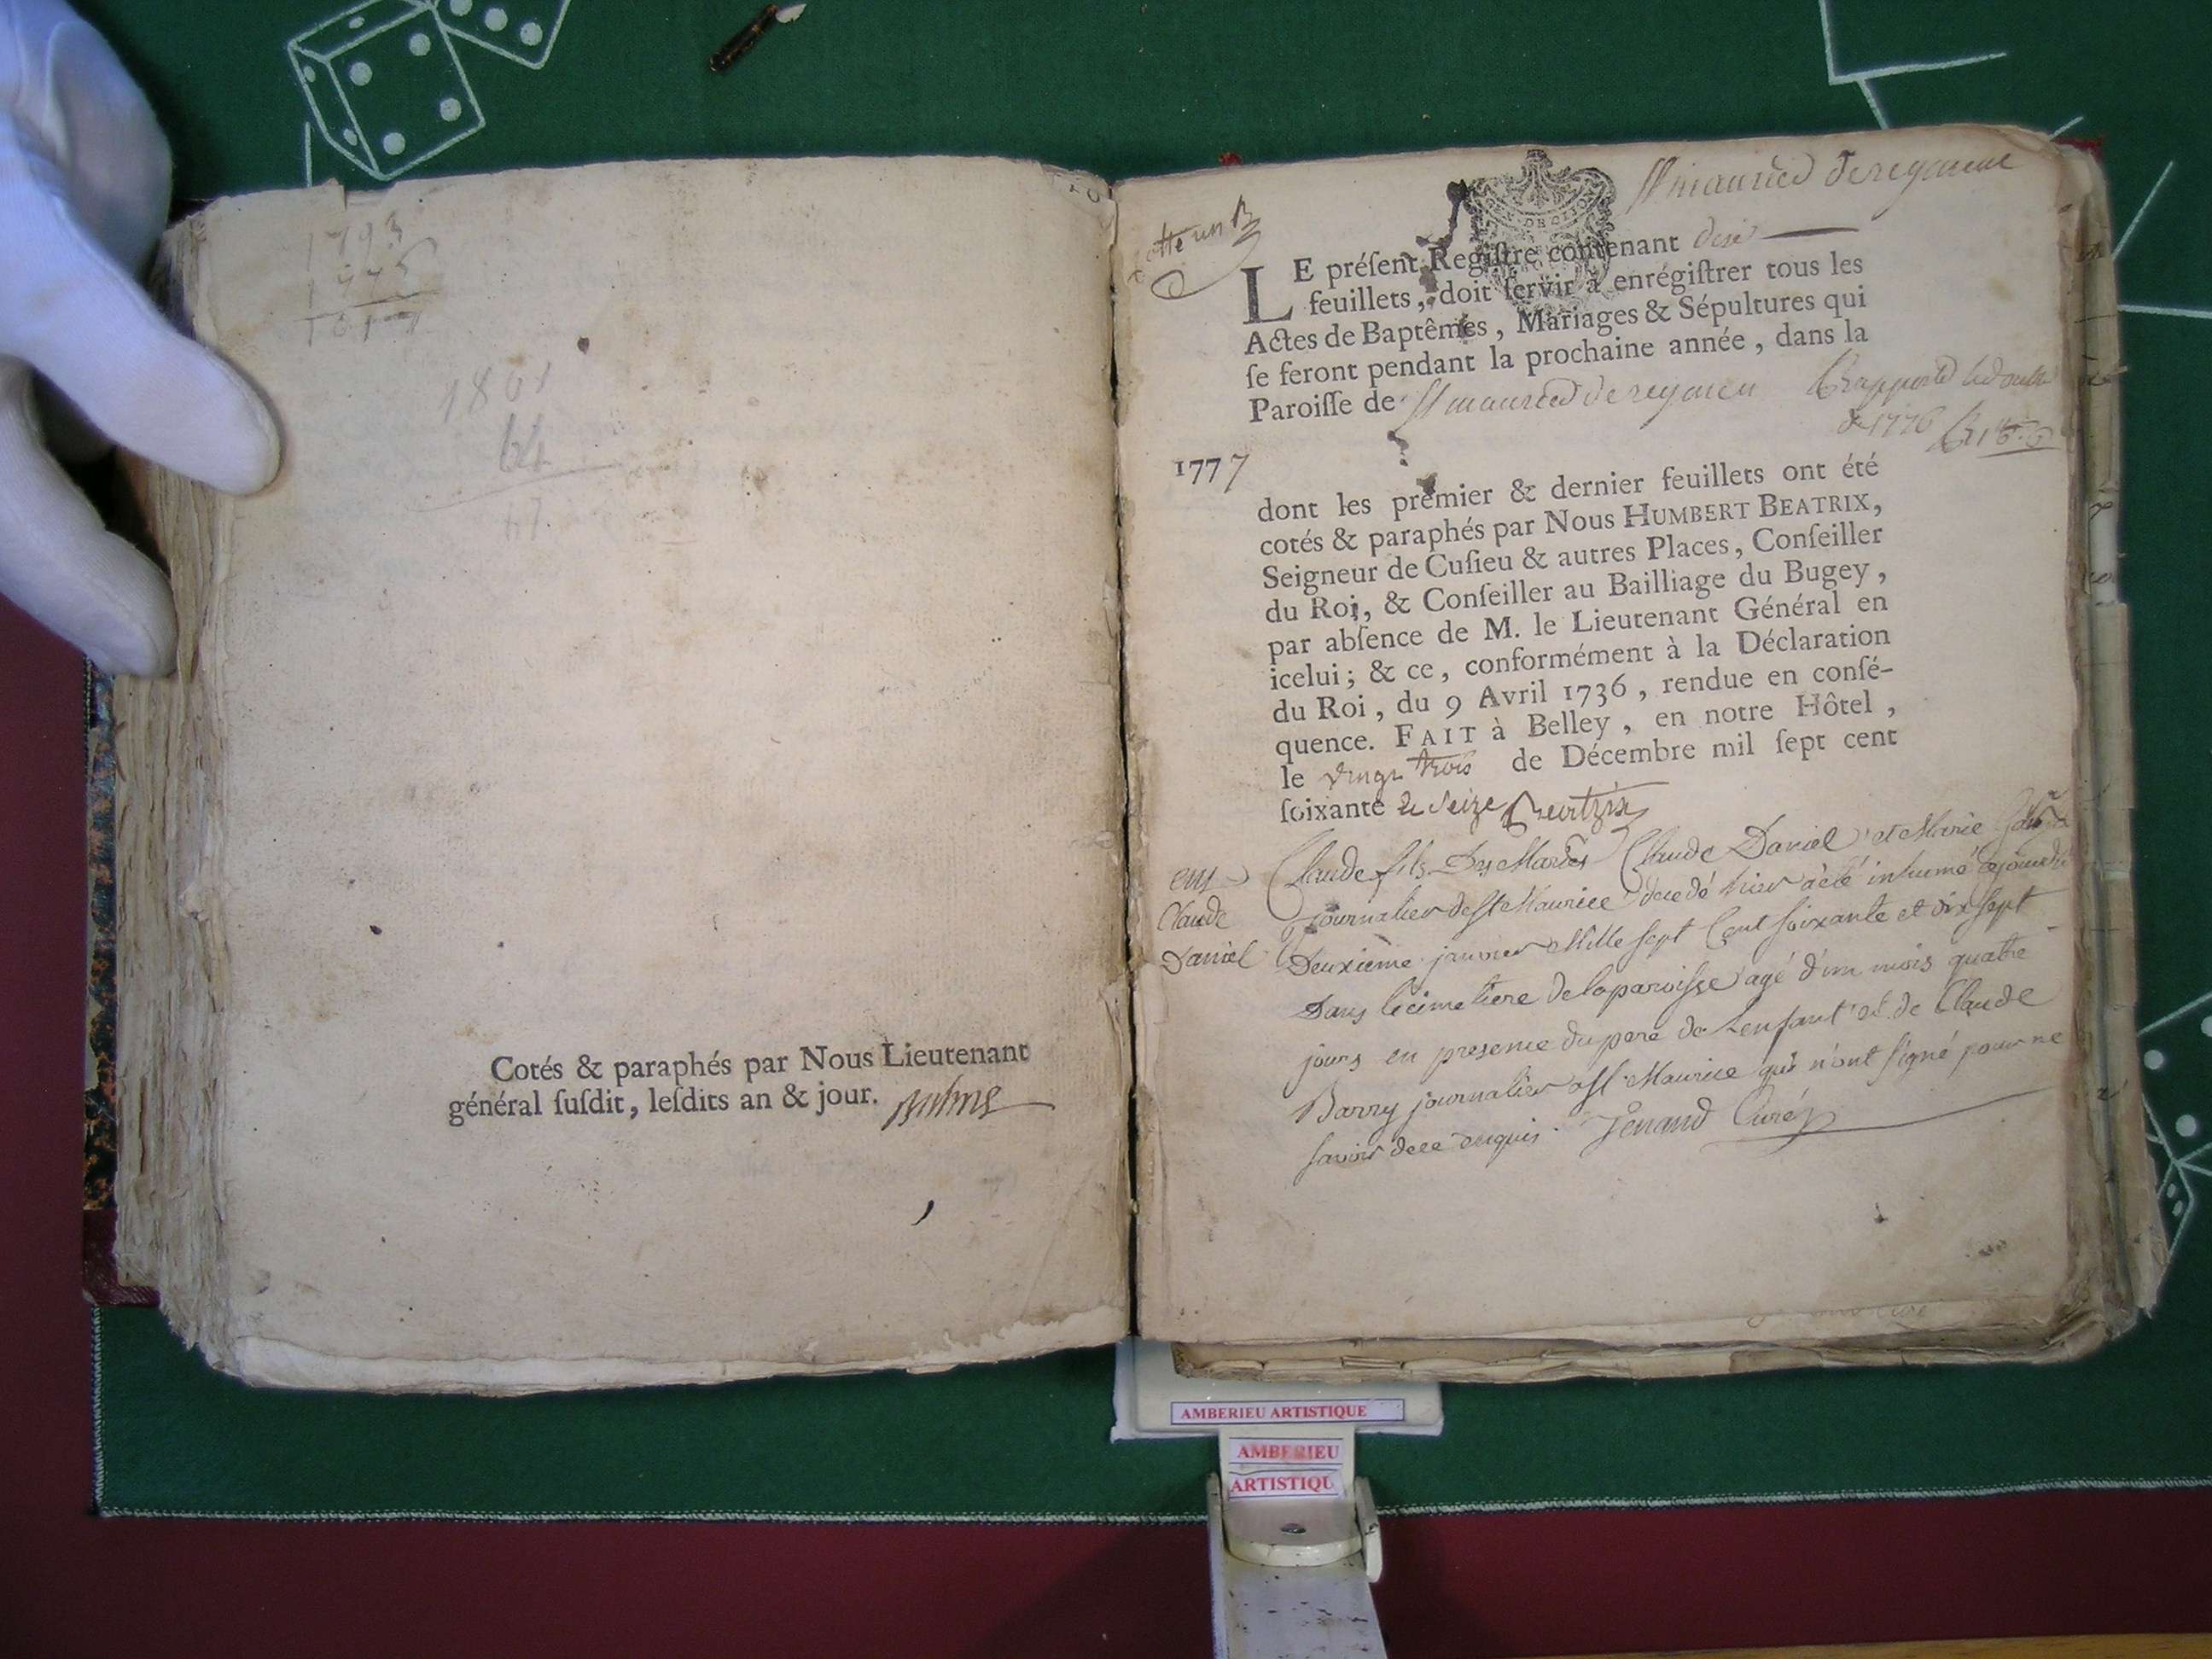 1793
1861
64
Cotés & paraphés par Nous Lieutenant
général ſuſdit, leſdits an & jour.
cotté un B
St maurice de reymeu
LE préſent Regiſtre contenant dix
feuillets, doit ſervir à enrégiſtrer tous les
Actes de Baptêmes, Mariages & Sépultures qui
ſe feront pendant la prochaine année, dans la
Paroiſſe de St maurice de reymeu
de 1776
1777
dont les premier & dernier feuillets ont été
cotés & paraphés par Nous HUMBERT BEATRIX,
Seigneur de Cuſieu & autres Places, Conſeiller
du Roi, & Conſeiller au Bailliage du Bugey,
par abſence de M. le Lieutenant Général en
icelui; & ce, conformément à la Déclaration
du Roi, du 9 Avril 1736, rendue en conſé-
quence. FAIT à Belley, en notre Hôtel,
le vingt trois de Décembre mil ſept cent
ſoixante & seize Beatrix
Claude fils de Claude Daniel et Marie
Claude
Daniel
journalier de St Maurice decedé hier a eté inhumé cejourdhui
Deuxieme janvier Mille sept Cent soixante et dix sept
Dans le cimetiere de la paroisse agé d'un mois quatre
jours en presence du pere de L'enfant et de Claude
Barry journalier a St Maurice qui n'ont signé pour ne
savoir de ce enquis. Jenand Curé
AMBERIEU ARTISTIQUE
AMBERIEU
ARTISTIQU